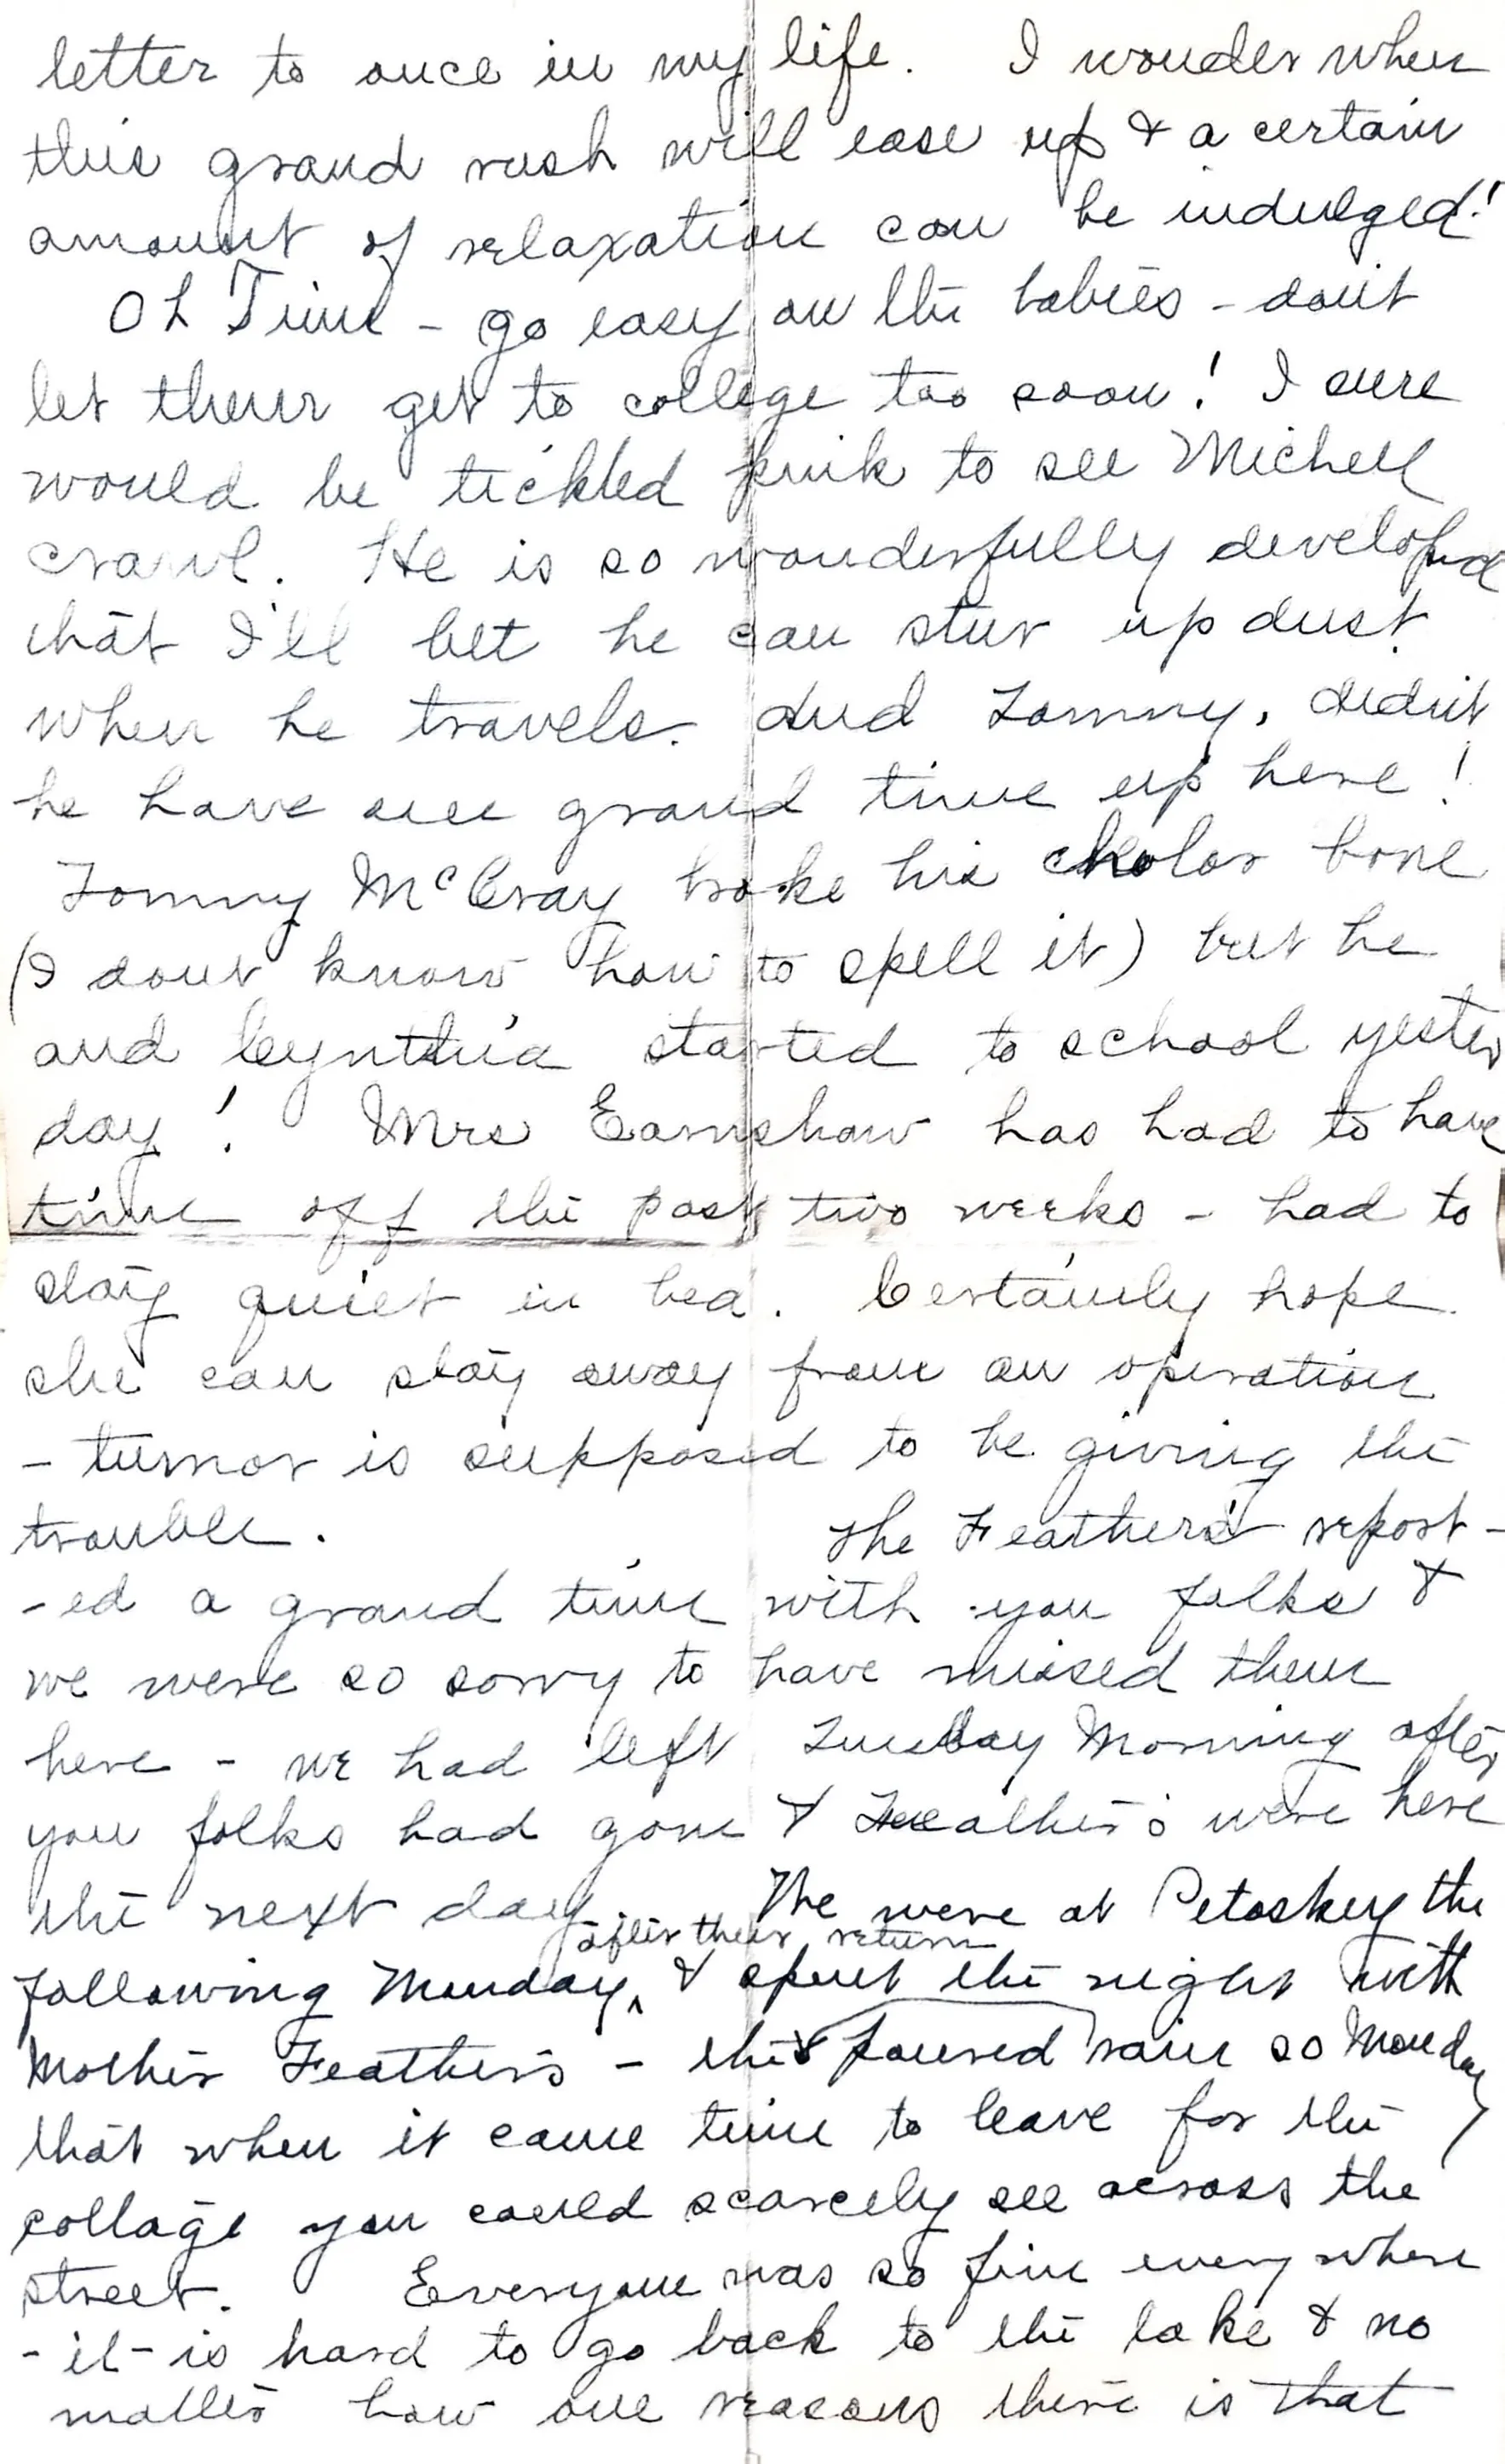 letter to once in my life. I wonder when
this grand rush will ease up & a certain
amount of relaxation can be indulged!
Oh Time - go easy on the babies - don't
let them get to college too soon! I sure
would be tickled pink to see Michell
crawl. He is so wonderfully developed
that I'll bet he can stir up dust
when he travels. And Tommy, didn't
he have one grand time up here!
Tommy McCray broke his cholar bone
(I dont know how to spell it) but he
and Cynthia started to school yester
day! Mrs Earnshaw has had to have
time off the past two weeks - had to
stay quiet in bed. Certainly hope
she can stay away from an operation
- tumor is supposed to be giving the
trouble. The Feather's report-
-ed a grand time with you folks &
we were so sorry to have missed them
here - we had left Tuesday Morning after
you folks had gone & Feather's were here
the next day. The were at Petoskey the
after their return
following Monday, & spent the night with
Mother Feathers - the poured rain so Monday
that when it came time to leave for the
cottage you could scarcely see across the
street. Everyone was so fine every where
- it is hard to go back to the lake & no
matter how one reasons there is that